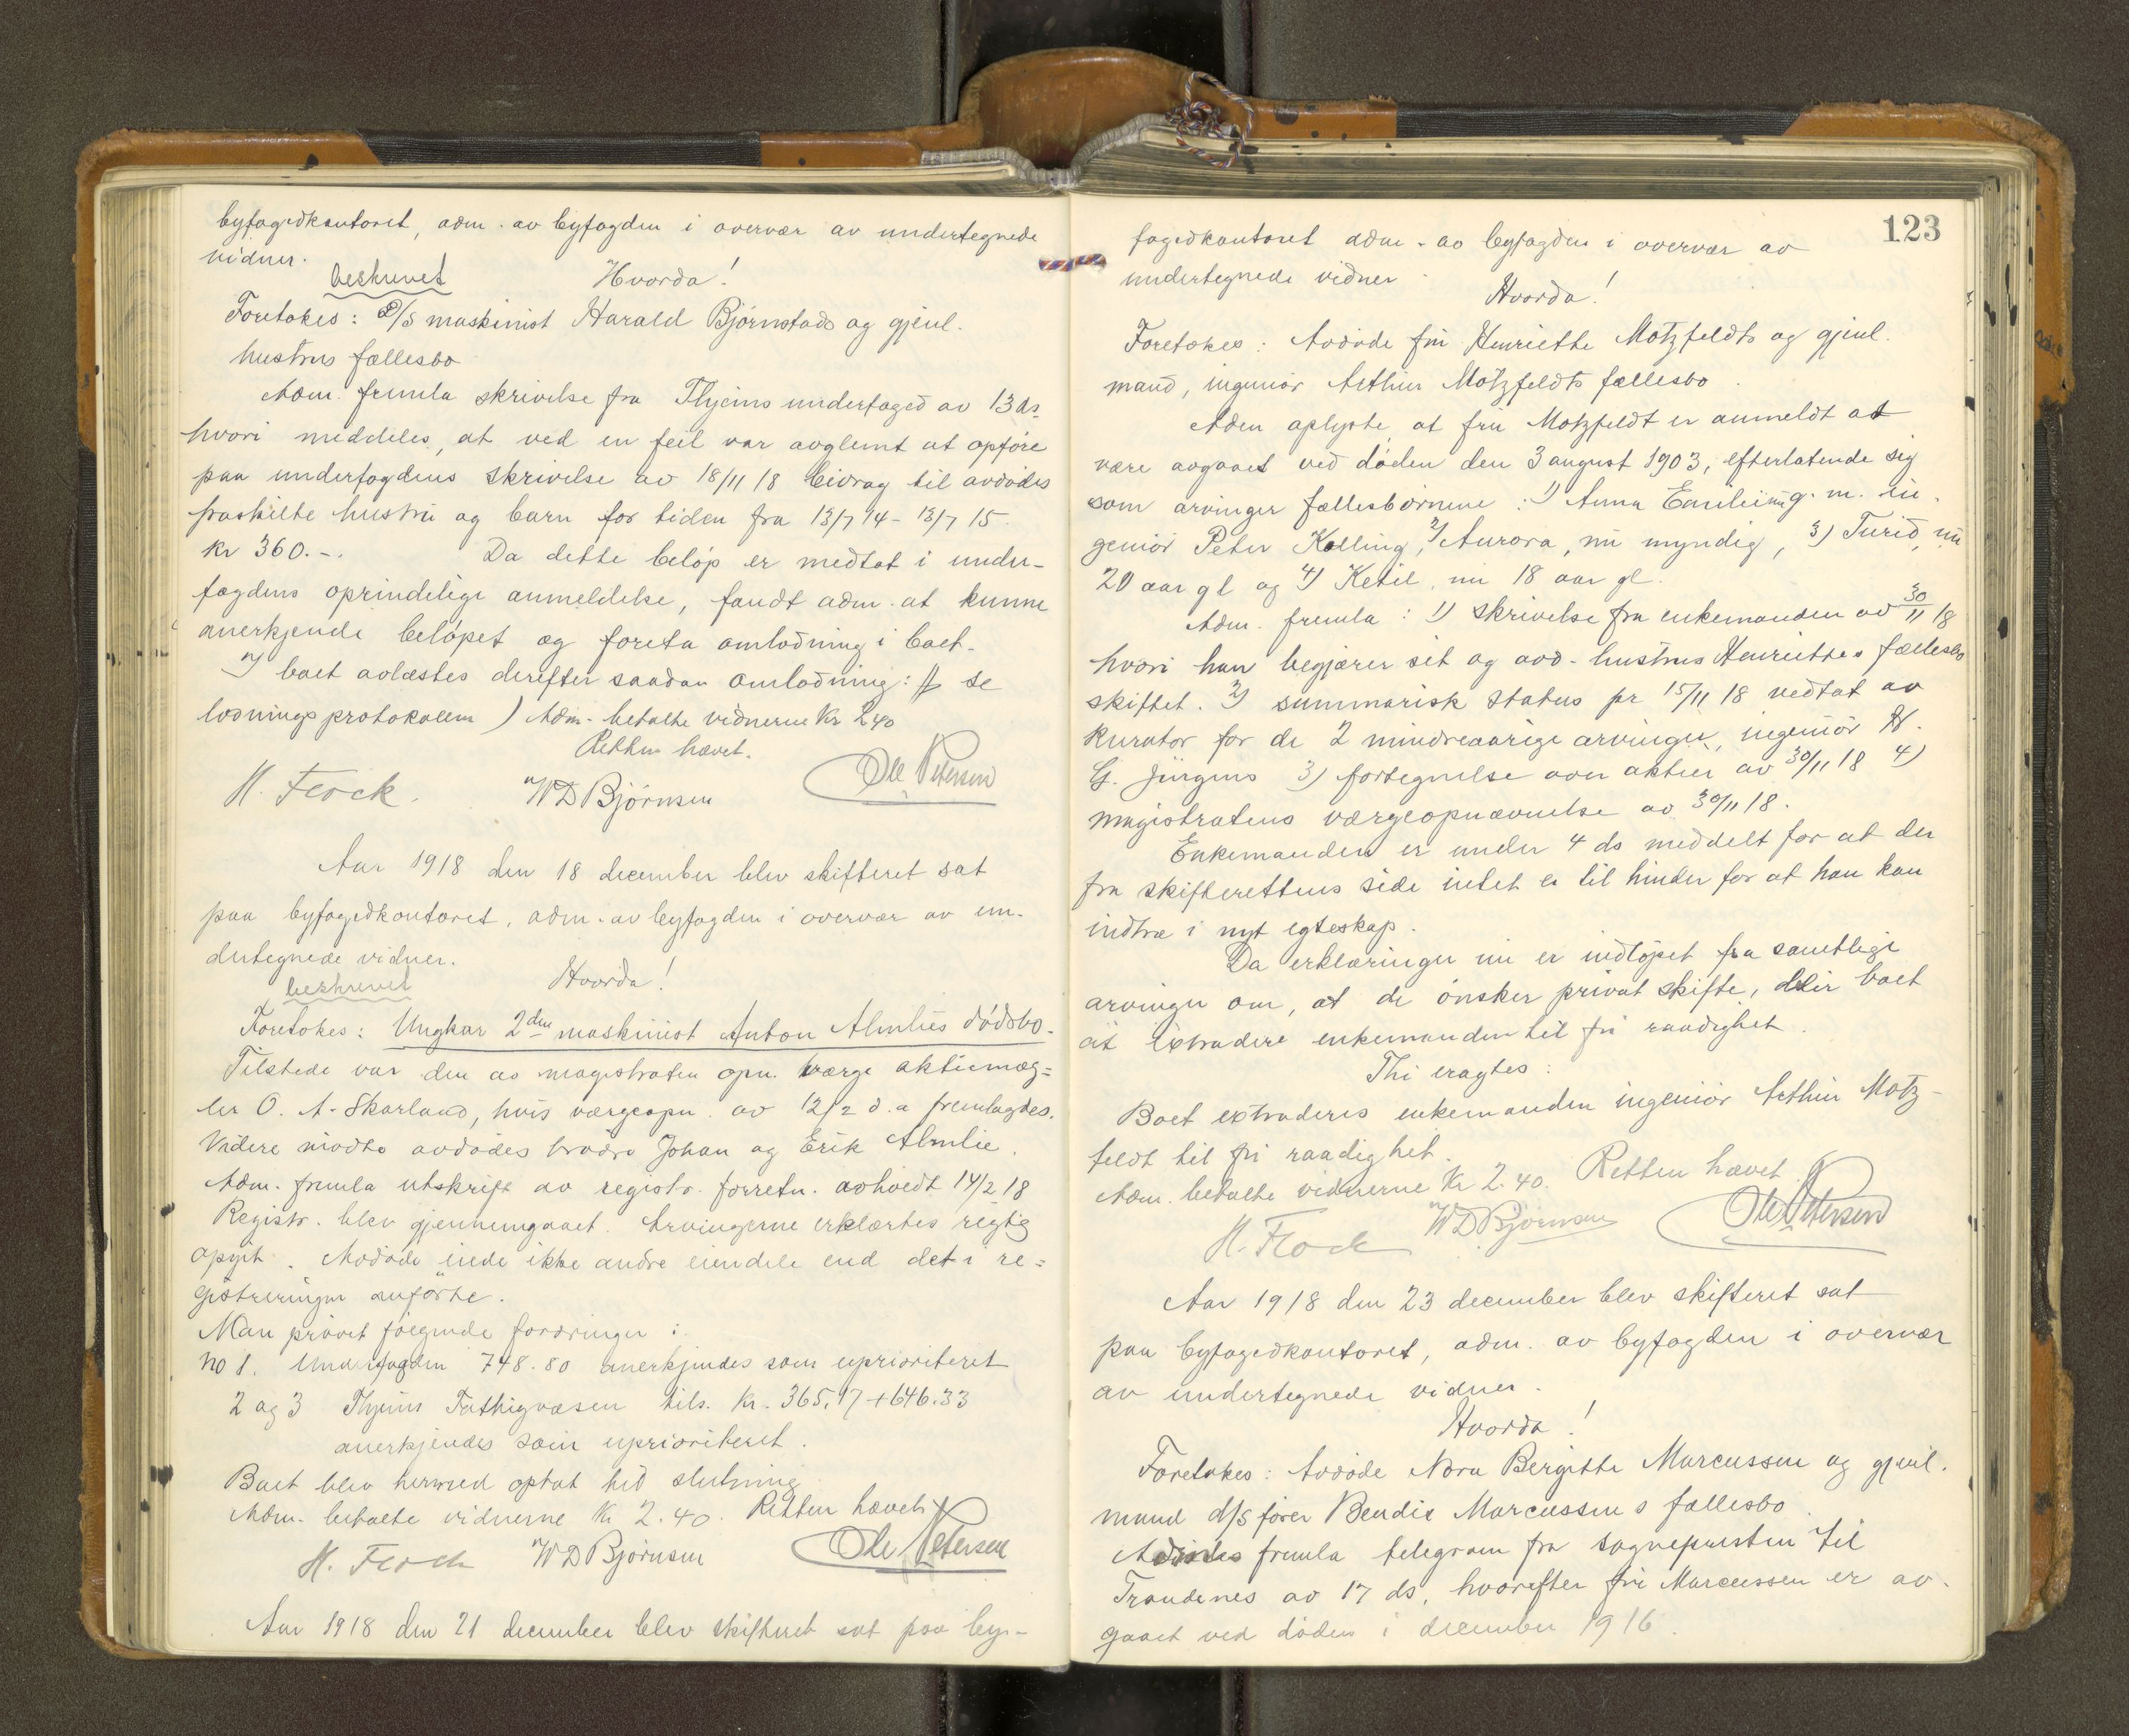 byfogedkontoret, adm. av byfogden i overvær av undertegnede
vidner.
beskrevet Hvorda!
Foretokes: D/S maskinist Harald Bjørnstads og gjenl.
hustrus fællesbo
Adm. fremla skrivelse fra Thjems underfoged av 13 ds
hvori meddeles, at ved en feil var avglemt at opføre
paa underfogdens skrivelse av 18/11 18 bidrag til avdødes
fraskilte hustru og barn for tiden fra 13/7 14 - 13/7 15
kr 360.-. Da dette beløp er medtat i under-
fogdens oprindelige anmeldelse, fandt adm. at kunne
anerkjende beløpet og foreta omlodning i boet.
I boet avlæstes derefter saadan omlodning: se
lodningsprotokollen) Adm. betalte vidnerne Kr 2.40
Retten hævet.
H. Flock. WD Bjørnsen Ole Petersen
Aar 1918 den 18 december blev skifteret sat
paa byfogedkontoret, adm. av byfogden i overvær av un-
dertegnede vidner.
beskrevet Hvorda!
Foretokes: Ungkar 2den maskinist Anton Almlies dødsbo.
Tilstede var den av magistraten opn. værge aktiemæg=
ler O. A. Skarland, hvis værgeopn. av 12/2 d.a fremlagdes.
Videre mødte avdødes brødre Johan og Erik Almlie.
Adm. fremla utskrift av registr. forretn. avholdt 14/2 18
Registr. blev gjennemgaaet. Arvingerne erklærtes rigtig
opgit. Avdøde eiede ikke andre eiendele end det i re=
gistreringen anførte.
Man prøvet følgende fordringer:
No 1. Underfogden 748.80 anerkjendes som uprioriteret
2 og 3 Thjems Fattigvæsen tils. Kr. 365.17 + 646.33
anerkjendes som uprioriteret.
Boet blev hermed optat til slutning
Adm. betalte vidnerne Kr 2.40. Retten hævet
H. Flock WD Bjørnsen Ole Petersen
Aar 1918 den 21 december blev skifteret sat paa by-
123
fogedkontoret adm. av byfogden i overvær av
undertegnede vidner
Hvorda!
Foretokes: Avdøde fru Henriette Motzfeldts og gjenl.
mand, ingeniør Arthur Motzfeldts fællesbo.
Adm oplyste at fru Motzfeldt er anmeldt at
være avgaaet ved døden den 3 august 1903, efterlatende sig
som arvinger fællesbørnene: 1) Anna g. m. in-
geniør Peter Kolling, 2) Aurora, nu myndig, 3) Turid, nu
20 aar gl og 4) Ketil, nu 18 aar gl.
Adm. fremla: 1) skrivelse fra enkemanden av 30/11 18
hvori han begjærer sit og avd. hustrus Henriettes fællesbo
skiftet. 2) summarisk status pr 15/11 18 vedtat av
kurator for de 2 mindreaarige arvinger, ingeniør H.
G. Jürgens 3) fortegnelse over aktier av 30/11 18 4)
magistratens værgeopnævnelse av 30/11 18.
Enkemanden er under 4 ds meddelt for at der
fra skifterettens side intet er til hinder for at han kan
indtræ i nyt egteskap.
Da erklæringer nu er indløpet fra samtlige
arvinger om, at de ønsker privat skifte, blir boet
at extradere enkemanden til fri raadighet.
Thi eragtes:
Boet extraderes enkemanden ingeniør Arthur Motz-
feldt til fri raadighet.
Adm. betalte vidnerne Kr 2.40. Retten hævet
H. Flock WD Bjørnsen Ole Petersen
Aar 1918 den 23 december blev skifteret sat
paa byfogedkontoret, adm. av byfogden i overvær
av undertegnede vidner.
Hvorda!
Foretokes: Avdøde Nora Bergitte Marcussen og gjenl.
mand d/s fører Bendix Marcussens fællesbo.
fremla telegram fra sognepresten til
Trondenes av 17 ds, hvorefter fru Marcussen er av-
gaaet ved døden i december 1916.